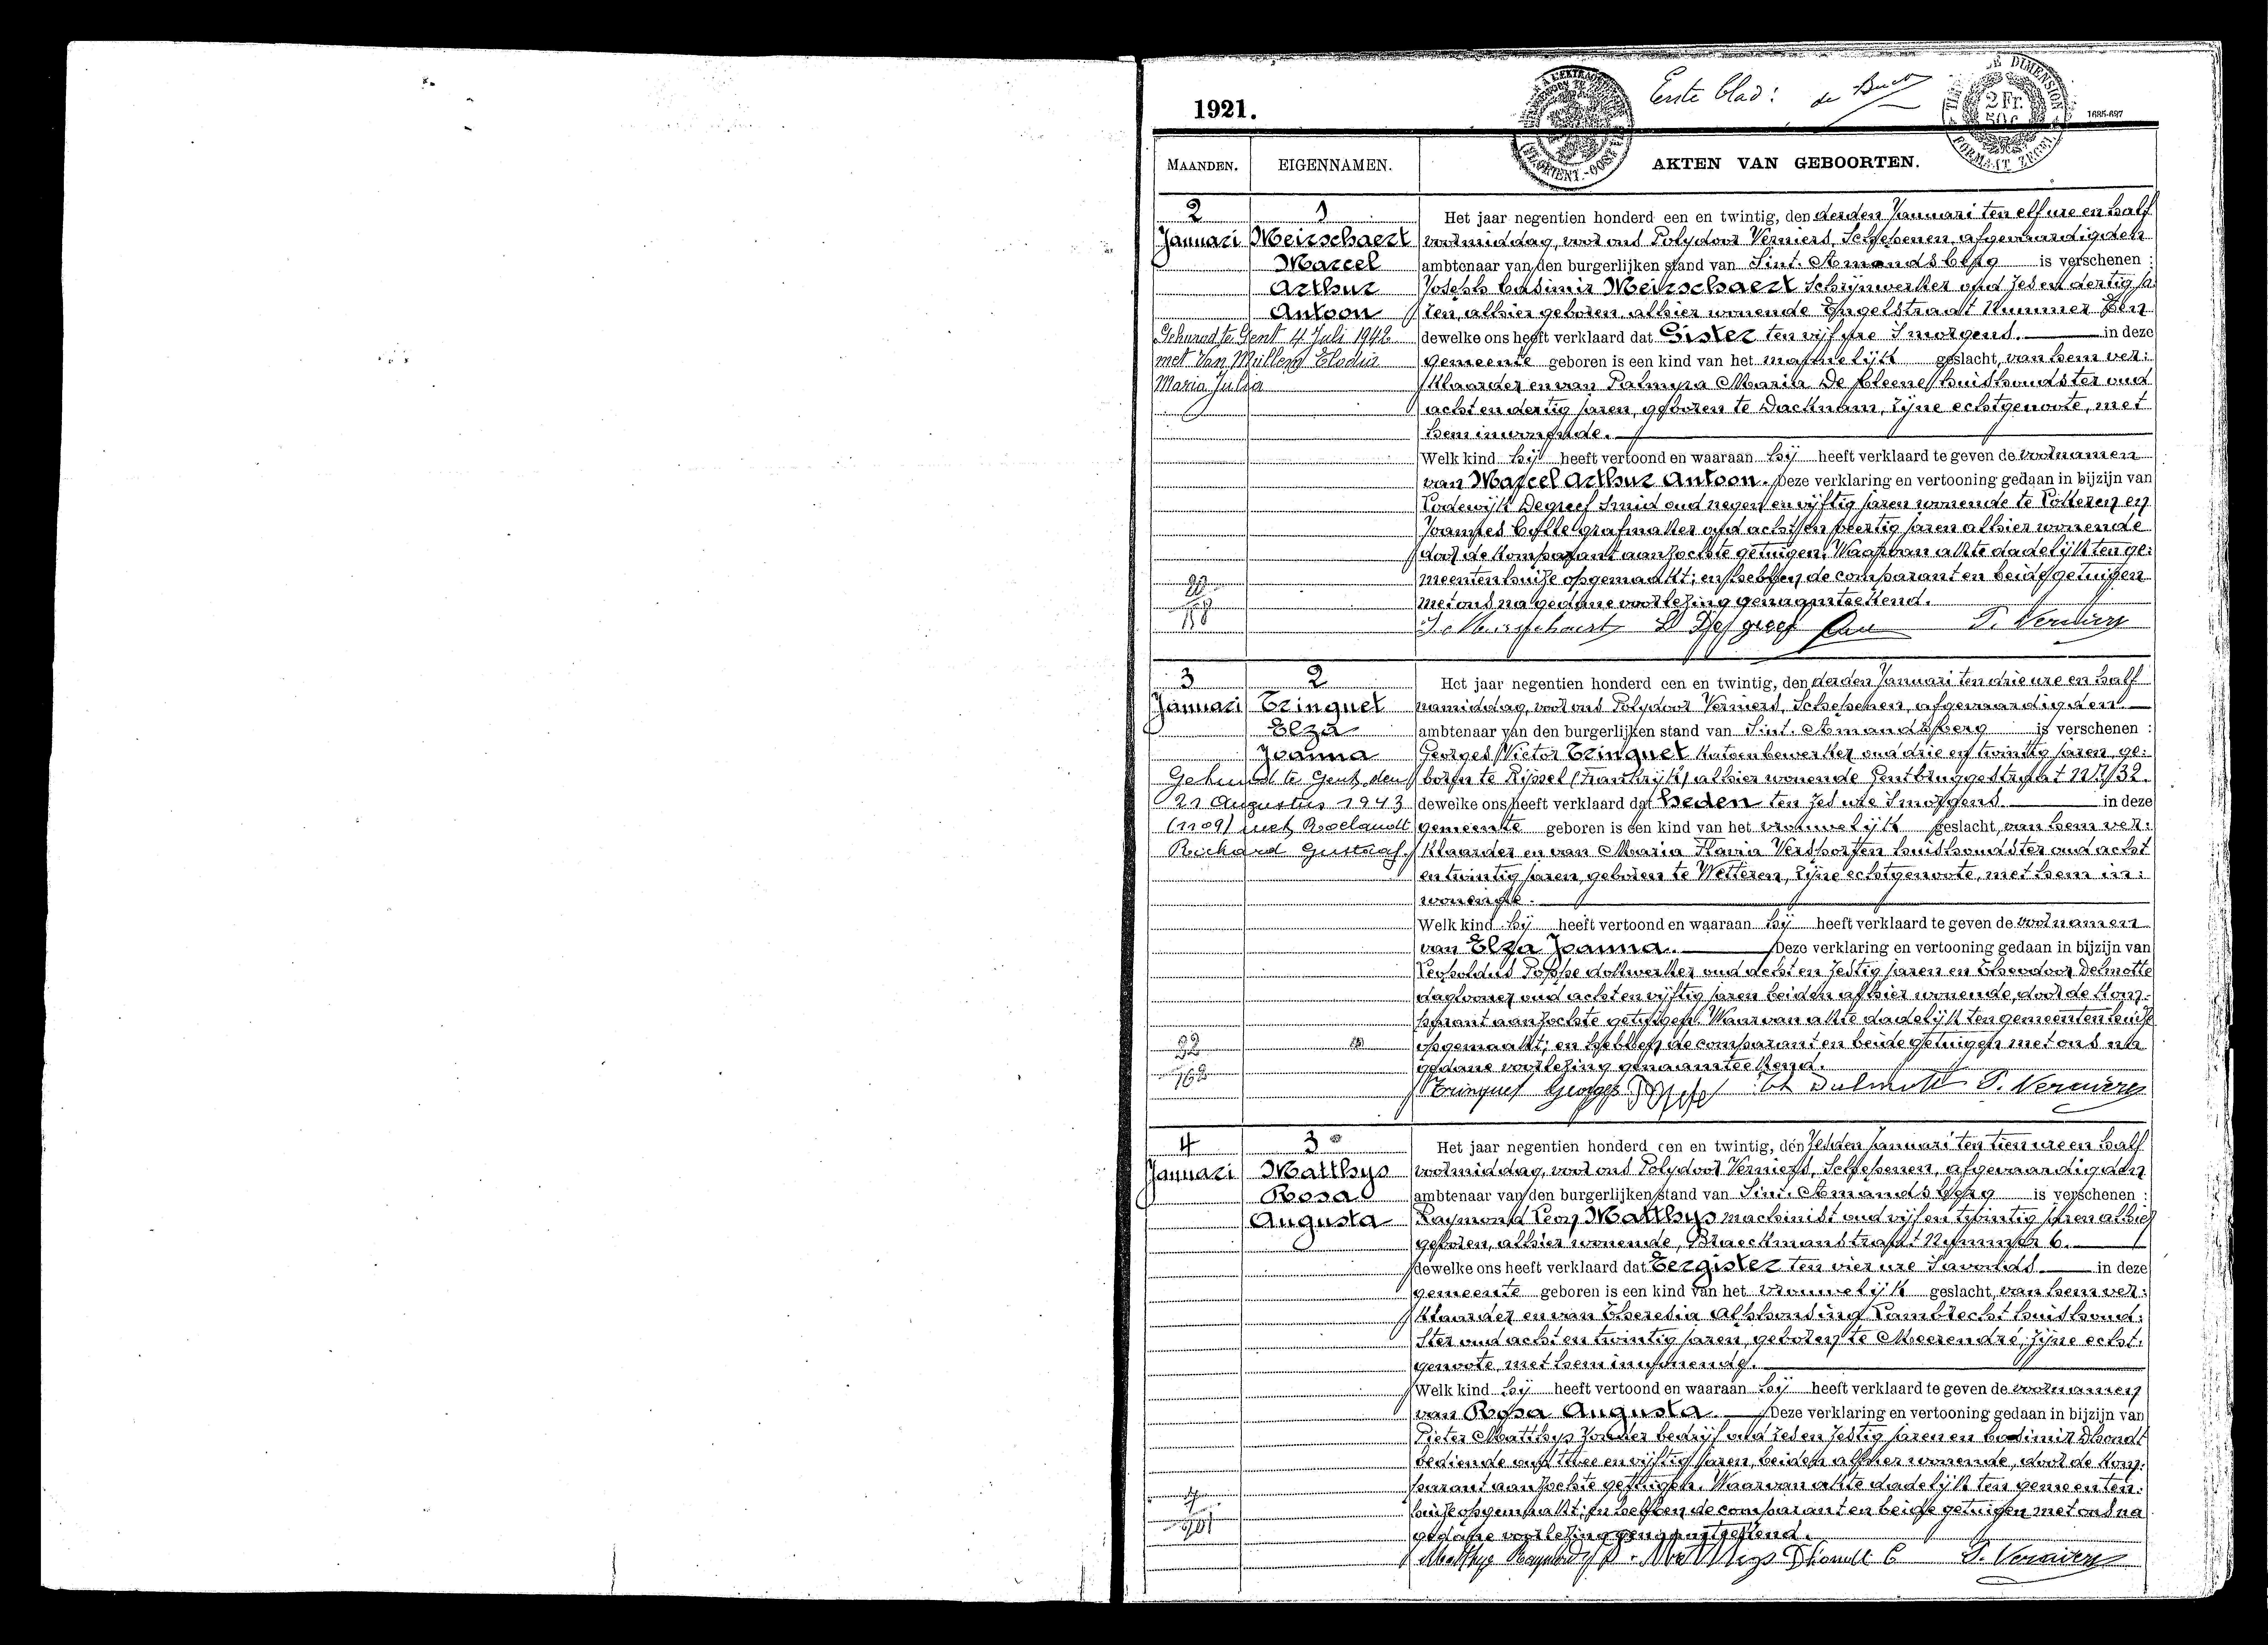 Eerste blad: de Buck
1921.
2 Fr. 50 c
1685-697
MAANDEN. EIGENNAMEN. AKTEN VAN GEBOORTEN.
2 1 Het jaar negentien honderd een en twintig, den derden Januari ten elf ure en half
Januari Meirschaert voormiddag, voor ons Polydoor Verniers, Schepenen, afgevaardigden
Marcel ambtenaar van den burgerlijken stand van Sint-Amandsberg is verschenen :
Arthur Joseph Casimir Meirschaert schrijnwerker oud zes en dertig ja:
Antoon ren, alhier geboren, alhier wonende Engelstraat Nummer
Gehuwd te Gent 4 Juli 1942 dewelke ons heeft verklaard dat Gister ten vijf ure 's morgens. in deze
met Van Mullem Elodie gemeente geboren is een kind van het mannelijk geslacht, van hem ver:
Maria Julia klaarder en van Palmyra Maria De Cleene huishoudster oud
acht en dertig jaren, geboren te Dacknam, zijne echtgenoote, met
hem inwonende.
Welk kind hij heeft vertoond en waaraan hij heeft verklaard te geven de voornamen
van Marcel Arthur Antoon. Deze verklaring en vertooning gedaan in bijzijn van
Lodewijk Degreef smid oud negen en vijftig jaren wonende te Lotteren en
Joannes grafmaker oud acht en veertig jaren alhier wonende
door de komparant aanzochte getuigen. Waarvan akte dadelijk ten ge:
meentenhuize opgemaakt; en hebben de comparant en beide getuigen
met ons na gedane voorlezing genaamteekend.
J. Meirschaert L Degreef P. Verniers
3 2 Het jaar negentien honderd een en twintig, den derden Januari ten drie ure en half
Januari Tringuet namiddag, voor ons Polydoor Verniers, Schepenen, afgevaardigden
Elza ambtenaar van den burgerlijken stand van Sint-Amandsberg is verschenen :
Joanna Georges Victor Tringuet katoenbewerker oud drie en twintig jaren, ge:
Gehuwd te Gent den boren te Rijssel (Frankrijk) alhier wonende Gentbruggestraat
21 Augustus 1943 dewelke ons heeft verklaard dat Heden ten zes ure 's morgens in deze
(1109) met Roelandt gemeente geboren is een kind van het vrouwelijk geslacht, van hem ver:
Richard Gustaaf. klaarder en van Maria Flavia Verstorfen huishoudster oud acht
en twintig jaren, geboren te Wetteren, zijne echtgenoote, met hem in:
wonende.
Welk kind hij heeft vertoond en waaraan hij heeft verklaard te geven de voornamen
van Elza Joanna. Deze verklaring en vertooning gedaan in bijzijn van
Leopoldus Poppe dokwerker oud acht en zestig jaren en Theodoor Delmotte
daglooner oud acht en vijftig jaren beiden alhier wonende, door de kom:
parant aanzochte getuigen. Waarvan akte dadelijk ten gemeentenhuize
opgemaakt; en hebben de comparant en beide getuigen met ons na
gedane voorlezing genaamteekend.
Tringuet Georges Delmotte P. Verniers
4 3 Het jaar negentien honderd een en twintig, den zesden Januari ten tien ure en half
Januari Matthys voormiddag, voor ons Polydoor Verniers, Schepenen, afgevaardigden
Rosa ambtenaar van den burgerlijken stand van Sint-Amandsberg is verschenen :
Augusta Raymond Leon Matthys machinist oud vijf en twintig jaren alhier
geboren, alhier wonende, Braeckmanstraat Nummer 6.
dewelke ons heeft verklaard dat Eergister ten vier ure 's avonds in deze
gemeente geboren is een kind van het vrouwelijk geslacht, van hem ver:
klaarder en van Theresia Alphonsina Lambrecht huishoud:
ster oud acht en twintig jaren, geboren te Meerendré, zijne echt:
genoote, met hem inwonende.
Welk kind hij heeft vertoond en waaraan hij heeft verklaard te geven de voornamen
van Rosa Augusta. Deze verklaring en vertooning gedaan in bijzijn van
Pieter Matthys zonder bedrijf oud zes en zestig jaren en Casimir Dhondt
bediende oud twee en vijftig jaren, beiden alhier wonende, door de kom:
parant aanzochte getuigen. Waarvan akte dadelijk ten gemeenten:
huize opgemaakt; en hebben de comparant en beide getuigen met ons na
gedane voorlezing genaamteekend.
Matthys Raymond P. Matthys Dhondt C P. Verniers